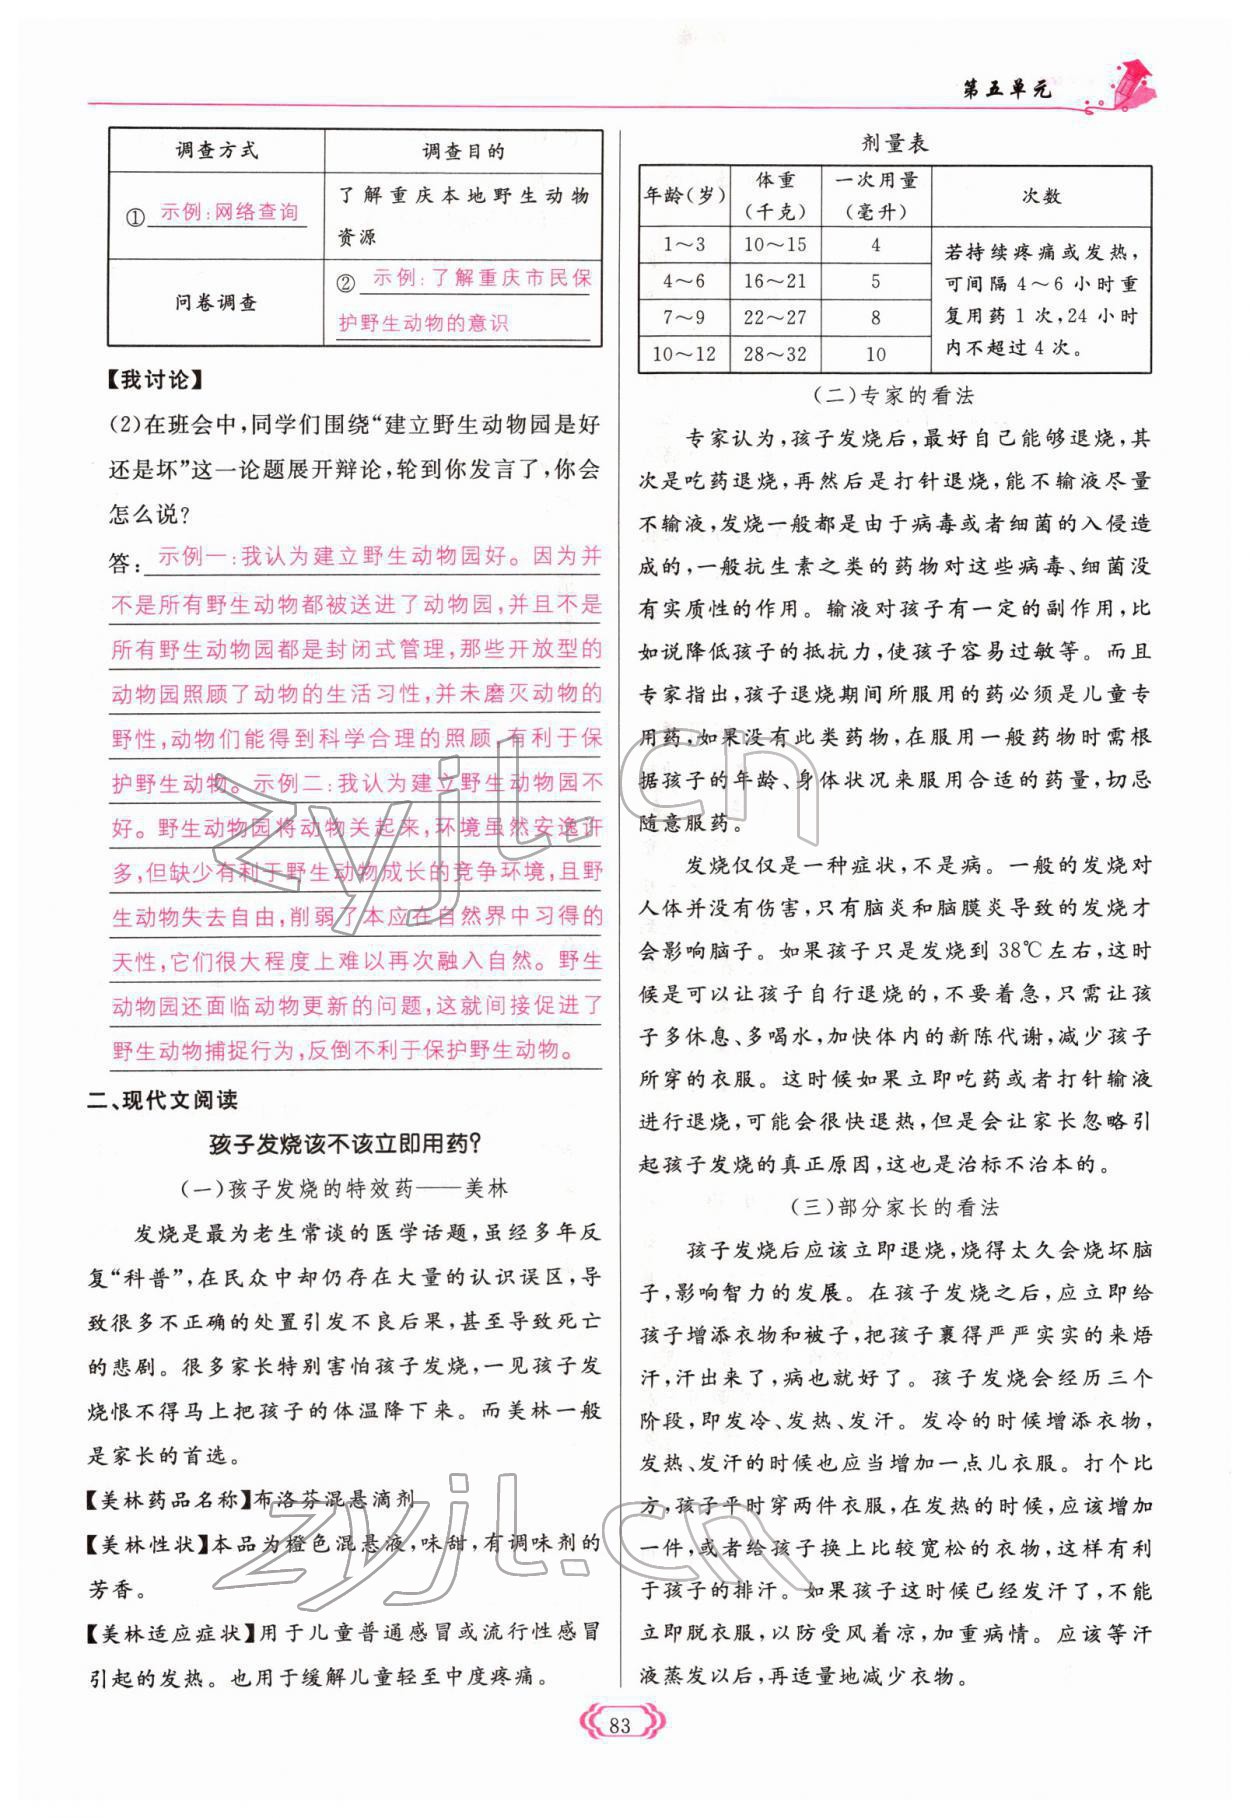 第五单元
调查方式
调查目的
① 示例:网络查询
了解重庆本地野生动物
资源
问卷调查
② 示例:了解重庆市民保
护野生动物的意识
【我讨论】
(2)在班会中,同学们围绕“建立野生动物园是好
还是坏”这一论题展开辩论,轮到你发言了,你会
怎么说?
答: 示例一:我认为建立野生动物园好。因为并
不是所有野生动物都被送进了动物园,并且不是
所有野生动物园都是封闭式管理,那些开放型的
动物园照顾了动物的生活习性,并未磨灭动物的
野性,动物们能得到科学合理的照顾,有利于保
护野生动物。示例二:我认为建立野生动物园不
好。野生动物园将动物关起来,环境虽然安逸许
多,但缺少有利于野生动物成长的竞争环境,且野
生动物失去自由,削弱了本应在自然界中习得的
天性,它们很大程度上难以再次融入自然。野生
动物园还面临动物更新的问题,这就间接促进了
野生动物捕捉行为,反倒不利于保护野生动物。
二、现代文阅读
孩子发烧该不该立即用药?
(一)孩子发烧的特效药——美林
发烧是最为老生常谈的医学话题,虽经多年反
复“科普”,在民众中却仍存在大量的认识误区,导
致很多不正确的处置引发不良后果,甚至导致死亡
的悲剧。很多家长特别害怕孩子发烧,一见孩子发
烧恨不得马上把孩子的体温降下来。而美林一般
是家长的首选。
【美林药品名称】布洛芬混悬滴剂
【美林性状】本品为橙色混悬液,味甜,有调味剂的
芳香。
【美林适应症状】用于儿童普通感冒或流行性感冒
引起的发热。也用于缓解儿童轻至中度疼痛。
剂量表
年龄(岁)
体重
(千克)
一次用量
(毫升)
次数
1～3 10～15 4
4～6 16～21 5
7～9 22～27 8
10～12 28～32 10
若持续疼痛或发热,
可间隔 4～6 小时重
复用药 1 次,24 小时
内不超过 4 次。
(二)专家的看法
专家认为,孩子发烧后,最好自己能够退烧,其
次是吃药退烧,再然后是打针退烧,能不输液尽量
不输液,发烧一般都是由于病毒或者细菌的入侵造
成的,一般抗生素之类的药物对这些病毒、细菌没
有实质性的作用。输液对孩子有一定的副作用,比
如说降低孩子的抵抗力,使孩子容易过敏等。而且
专家指出,孩子退烧期间所服用的药必须是儿童专
用药,如果没有此类药物,在服用一般药物时需根
据孩子的年龄、身体状况来服用合适的药量,切忌
随意服药。
发烧仅仅是一种症状,不是病。一般的发烧对
人体并没有伤害,只有脑炎和脑膜炎导致的发烧才
会影响脑子。如果孩子只是发烧到 38℃左右,这时
候是可以让孩子自行退烧的,不要着急,只需让孩
子多休息、多喝水,加快体内的新陈代谢,减少孩子
所穿的衣服。这时候如果立即吃药或者打针输液
进行退烧,可能会很快退热,但是会让家长忽略引
起孩子发烧的真正原因,这也是治标不治本的。
(三)部分家长的看法
孩子发烧后应该立即退烧,烧得太久会烧坏脑
子,影响智力的发展。在孩子发烧之后,应立即给
孩子增添衣物和被子,把孩子裹得严严实实的来焐
汗,汗出来了,病也就好了。孩子发烧会经历三个
阶段,即发冷、发热、发汗。发冷的时候增添衣物,
发热、发汗的时候也应当增加一点儿衣服。打个比
方,孩子平时穿两件衣服,在发热的时候,应该增加
一件,或者给孩子换上比较宽松的衣物,这样有利
于孩子的排汗。如果孩子这时候已经发汗了,不能
立即脱衣服,以防受风着凉,加重病情。应该等汗
液蒸发以后,再适量地减少衣物。
83
zyjl.cn
zyjl.cn